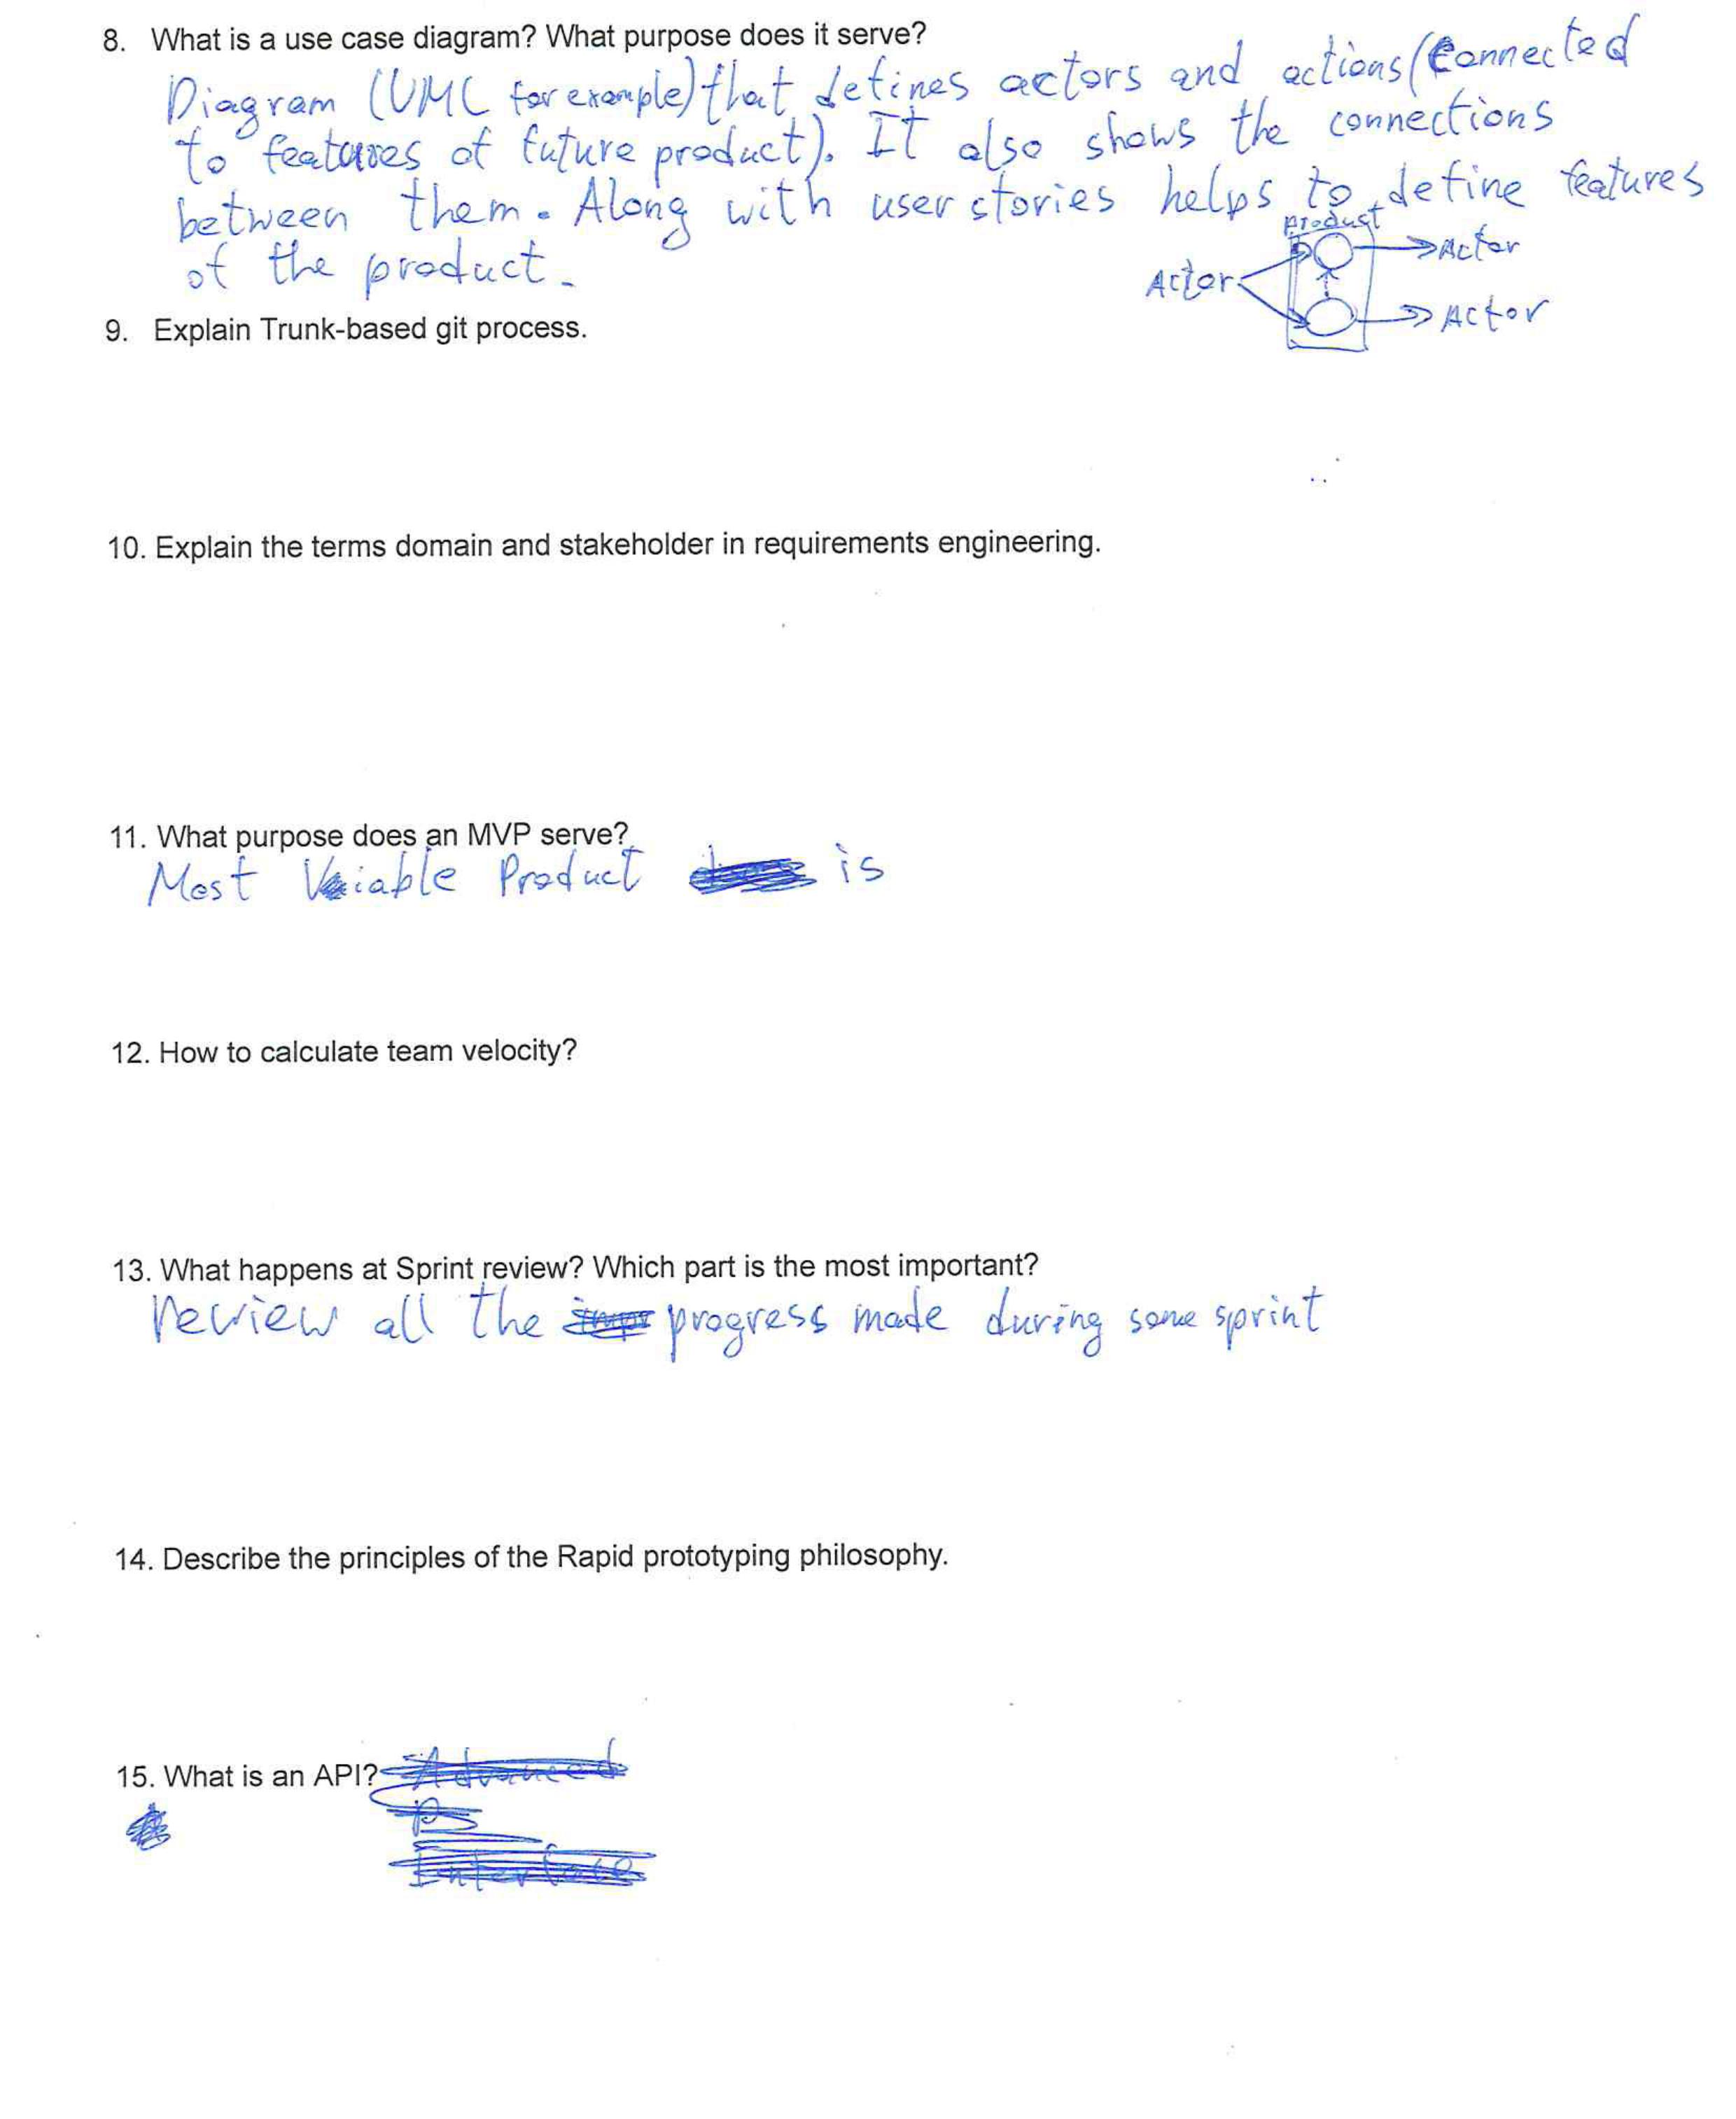 8. What is a use case diagram? What purpose does it serve?
Diagram (UML for example) that defines actors and actions (connected
to features of future product). It also shows the connections
between them. Along with user stories helps to define features
of the product.
product
Actor
Actor
Actor
9. Explain Trunk-based git process.
10. Explain the terms domain and stakeholder in requirements engineering.
11. What purpose does an MVP serve?
Most Viable Product is
12. How to calculate team velocity?
13. What happens at Sprint review? Which part is the most important?
review all the progress made during some sprint
14. Describe the principles of the Rapid prototyping philosophy.
15. What is an API? Advanced
Interface